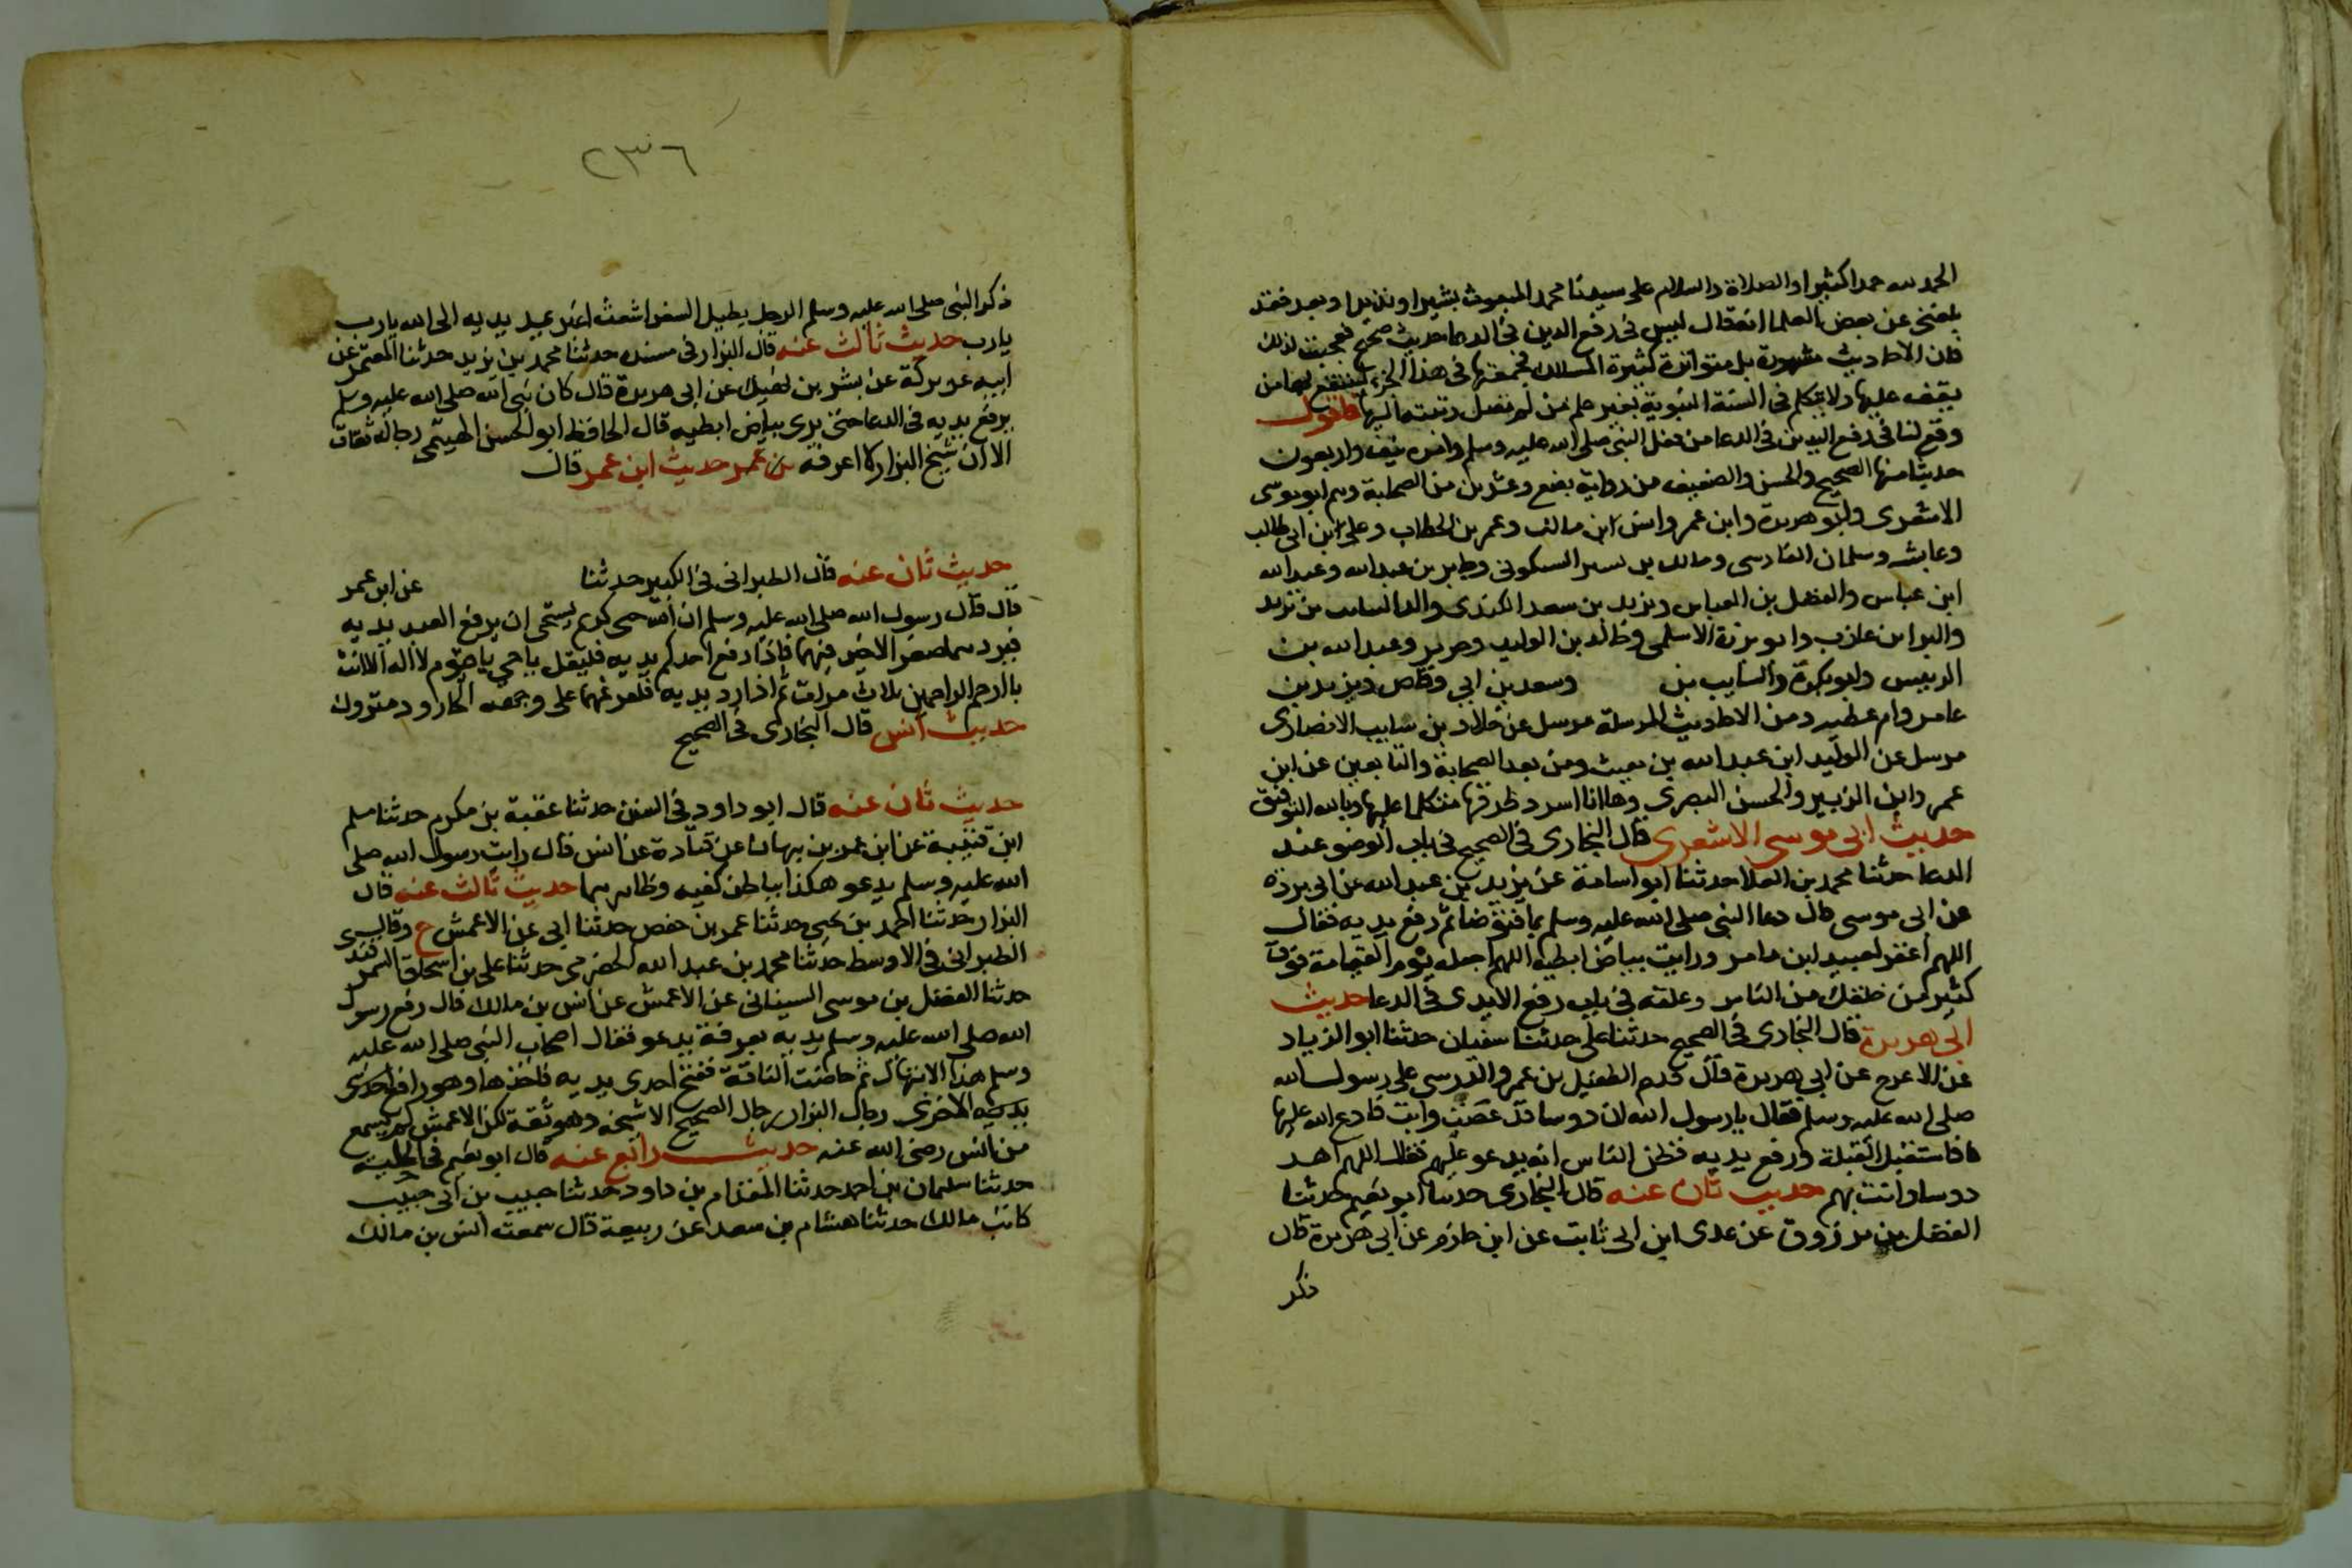 الحمد لله حمدا كثيرا والصلاة والسلام على سيدنا محمد المبعوث بشيرا ونذيرا وبعد فقد
بلغني عن بعض العلما انه قال ليس في رفع اليدين في الدعا حديث صحيح فعجبت لذلك
فان الاحاديث مشهورة بل متواترة كثيرة المسالك فجمعتها في هذا الجزء لينتفع بها من
يقف عليها ولا يتكلم في السنة النبوية بغير علم من لم يصل رتبته اليها فاقول
وقع لنا في رفع اليدين في الدعا من فعل النبي صلى الله عليه وسلم وامره نيف واربعون
حديثا منها الصحيح والحسن والضعيف من رواية بضع وعشرين من الصحابة وهم ابو موسى
الاشعرى وابو هريرة وابن عمر وانس ابن مالك وعمر بن الخطاب وعلى ابن ابى طالب
وعايشه وسلمان الفارسى ومالك بن يسر السكونى وجابر بن عبد الله وعبد الله
ابن عباس والفضل بن العباس ويزيد بن سعد الكندى والد السايب بن يزيد
والبرا بن عازب وابو برزة الاسلمى وخالد بن الوليد وجرير وعبد الله بن
الزبير وابو بكرة والسايب بن وسعد بن ابي وقاص ويزيد بن
عامر وام عطيه ومن الاحاديث المرسلة مرسل عن خلاد بن سايب الانصارى
مرسل عن الوليد ابن عبد الله بن مغيث ومن بعد الصحابة والتابعين عن ابن
عمر وابن الزبير والحسن البصرى وها انا اسرد طرقها متكلما عليها وبالله التوفيق
حديث ابى موسى الاشعرى قال البخارى فى الصحيح فى باب الوضوء عند
الدعا حدثنا محمد بن العلا حدثنا ابو اسامة عن يزيد بن عبد الله عن ابى بردة
عن ابى موسى قال دعا النبى صلى الله عليه وسلم بما فتوضا ثم رفع يديه فقال
اللهم اغفر لعبيد ابن عامر ورايت بياض ابطيه اللهم اجعله يوم القيامة فوق
كثير من خلقك من الناس وعلقه فى باب رفع الايدى فى الدعا حديث
ابى هريرة قال البخارى فى الصحيح حدثنا على حدثنا سفيان حدثنا ابو الزياد
عن الاعرج عن ابى هريرة قال قدم الطفيل بن عمرو الدوسى على رسول الله
صلى الله عليه وسلم فقال يا رسول الله ان دوسا قد عصت وابت فادع الله عليها
فاستقبل القبلة ورفع يديه فظن الناس انه يدعو عليهم فقال اللهم اهد
دوسا وائت بهم حديث ثان عنه قال البخارى حدثنا ابو نعيم حدثنا
الفضل بن مرزوق عن عدى ابن ابى ثابت عن ابن حازم عن ابى هريرة قال
ذكر
٢٣٦
ذكر النبى صلى الله عليه وسلم الرجل يطيل السفر اشعث اغبر يديه الى الله يا رب
يارب حديث ثالث عنه قال البزار فى مسنده حدثنا محمد بن يزيد حدثنا المعتمر عن
ابيه عن بركة عن بشر بن نهيك عن ابى هريرة قال كان نبى الله صلى الله عليه وسلم
يرفع يديه فى الدعا حتى يرى بياض ابطيه قال الحافظ ابو الحسن الهيثمى رجاله ثقات
الا ان شيخ البزار لا اعرفه بن عمر حديث ابن عمر قال
حديث ثان عنه قال الطبرانى فى الكبير حدثنا عن ابن عمر
قال قال رسول الله صلى الله عليه وسلم ان الله حى كريم يستحى ان يرفع العبد يديه
فيردهما صفرا لا خير فيهما فاذا رفع احدكم يديه فليقل يا حى يا قيوم لا اله الا انت
يا ارحم الراحمين ثلاث مرات ثم اذا رد يديه فليفرغهما على وجهه الجارود متروك
حديث انس قال البخارى فى الصحيح
حديث ثان عنه قال ابو داود فى السنن حدثنا عقبة بن مكرم حدثنا سلم
ابن قتيبة عن ابن عمر بن نبهان عن قتادة عن انس قال رايت رسول الله صلى
الله عليه وسلم يدعو هكذا بباطن كفيه وظاهرهما حديث ثالث عنه قال
البزار حدثنا احمد بن يحيى حدثنا عمر بن حفص حدثنا ابى عن الاعمش ح وقال
الطبرانى فى الاوسط حدثنا محمد بن عبد الله الحضرمى حدثنا على بن اسحاق السمرقندى
حدثنا الفضل بن موسى السينانى عن الاعمش عن انس بن مالك قال رفع رسول
الله صلى الله عليه وسلم يديه بعرفة يدعو فقال اصحاب النبى صلى الله عليه
وسلم هذا الابتهال ثم حاضت الناقة ففتح احدى يديه فاخذها وهو رافع احدى
يديه الاخرى رجال البزار رجال الصحيح الا شيخه وهو ثقة لكن الاعمش لم يسمع
من انس رضى الله عنه حديث رابع عنه قال ابو نعيم فى الحلية
حدثنا سليمان بن احمد حدثنا المقدام بن داود حدثنا حبيب بن ابى حبيب
كاتب مالك حدثنا هشام بن سعد عن ربيعة قال سمعت انس بن مالك